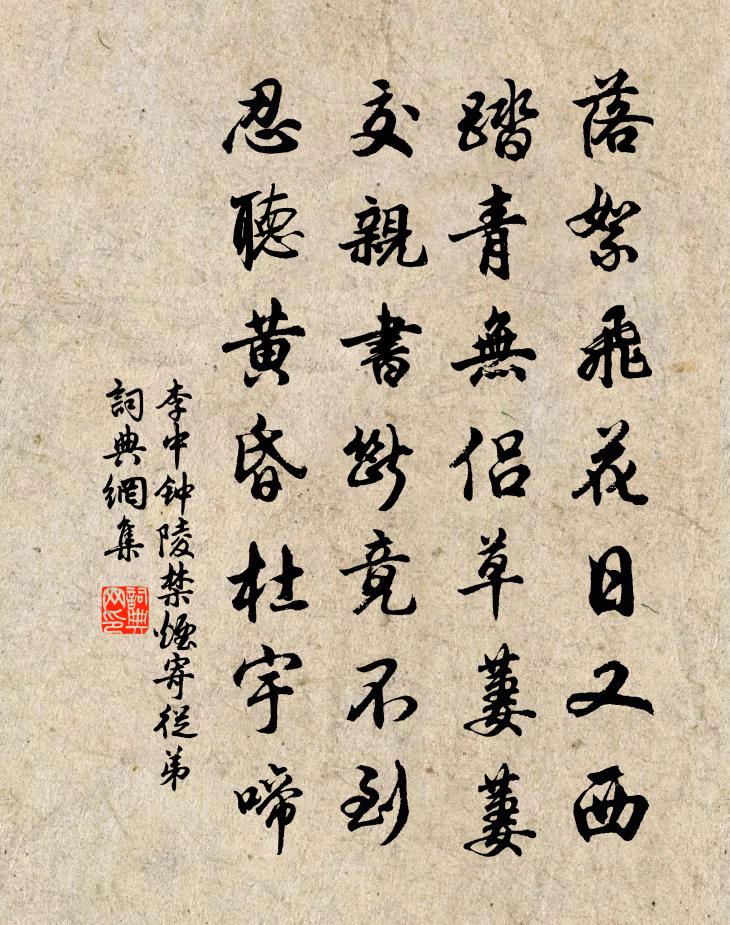 落絮飛花日又西
踏青無侶草萋萋
交親書斷竟不到
忍聽黃昏杜宇啼
李中鍾陵禁煙寄從弟
詞典網集
詞典网印